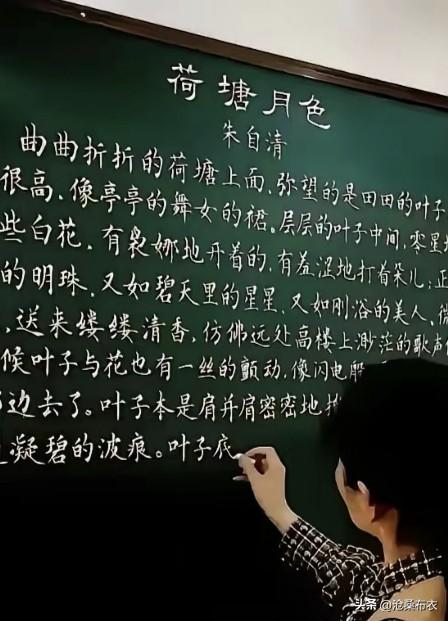 荷塘月色
朱自清
曲曲折折的荷塘上面,弥望的是田田的叶子
很高,像亭亭的舞女的裙。层层的叶子中间,零星
些白花,有袅娜地开着的,有羞涩地打着朵儿;正
的明珠,又如碧天里的星星,又如刚浴的美人。微
,送来缕缕清香,仿佛远处高楼上渺茫的歌声
候叶子与花也有一丝的颤动,像闪电般
边去了。叶子本是肩并肩密密地
凝碧的波痕。叶子底
头条 @沧桑布衣